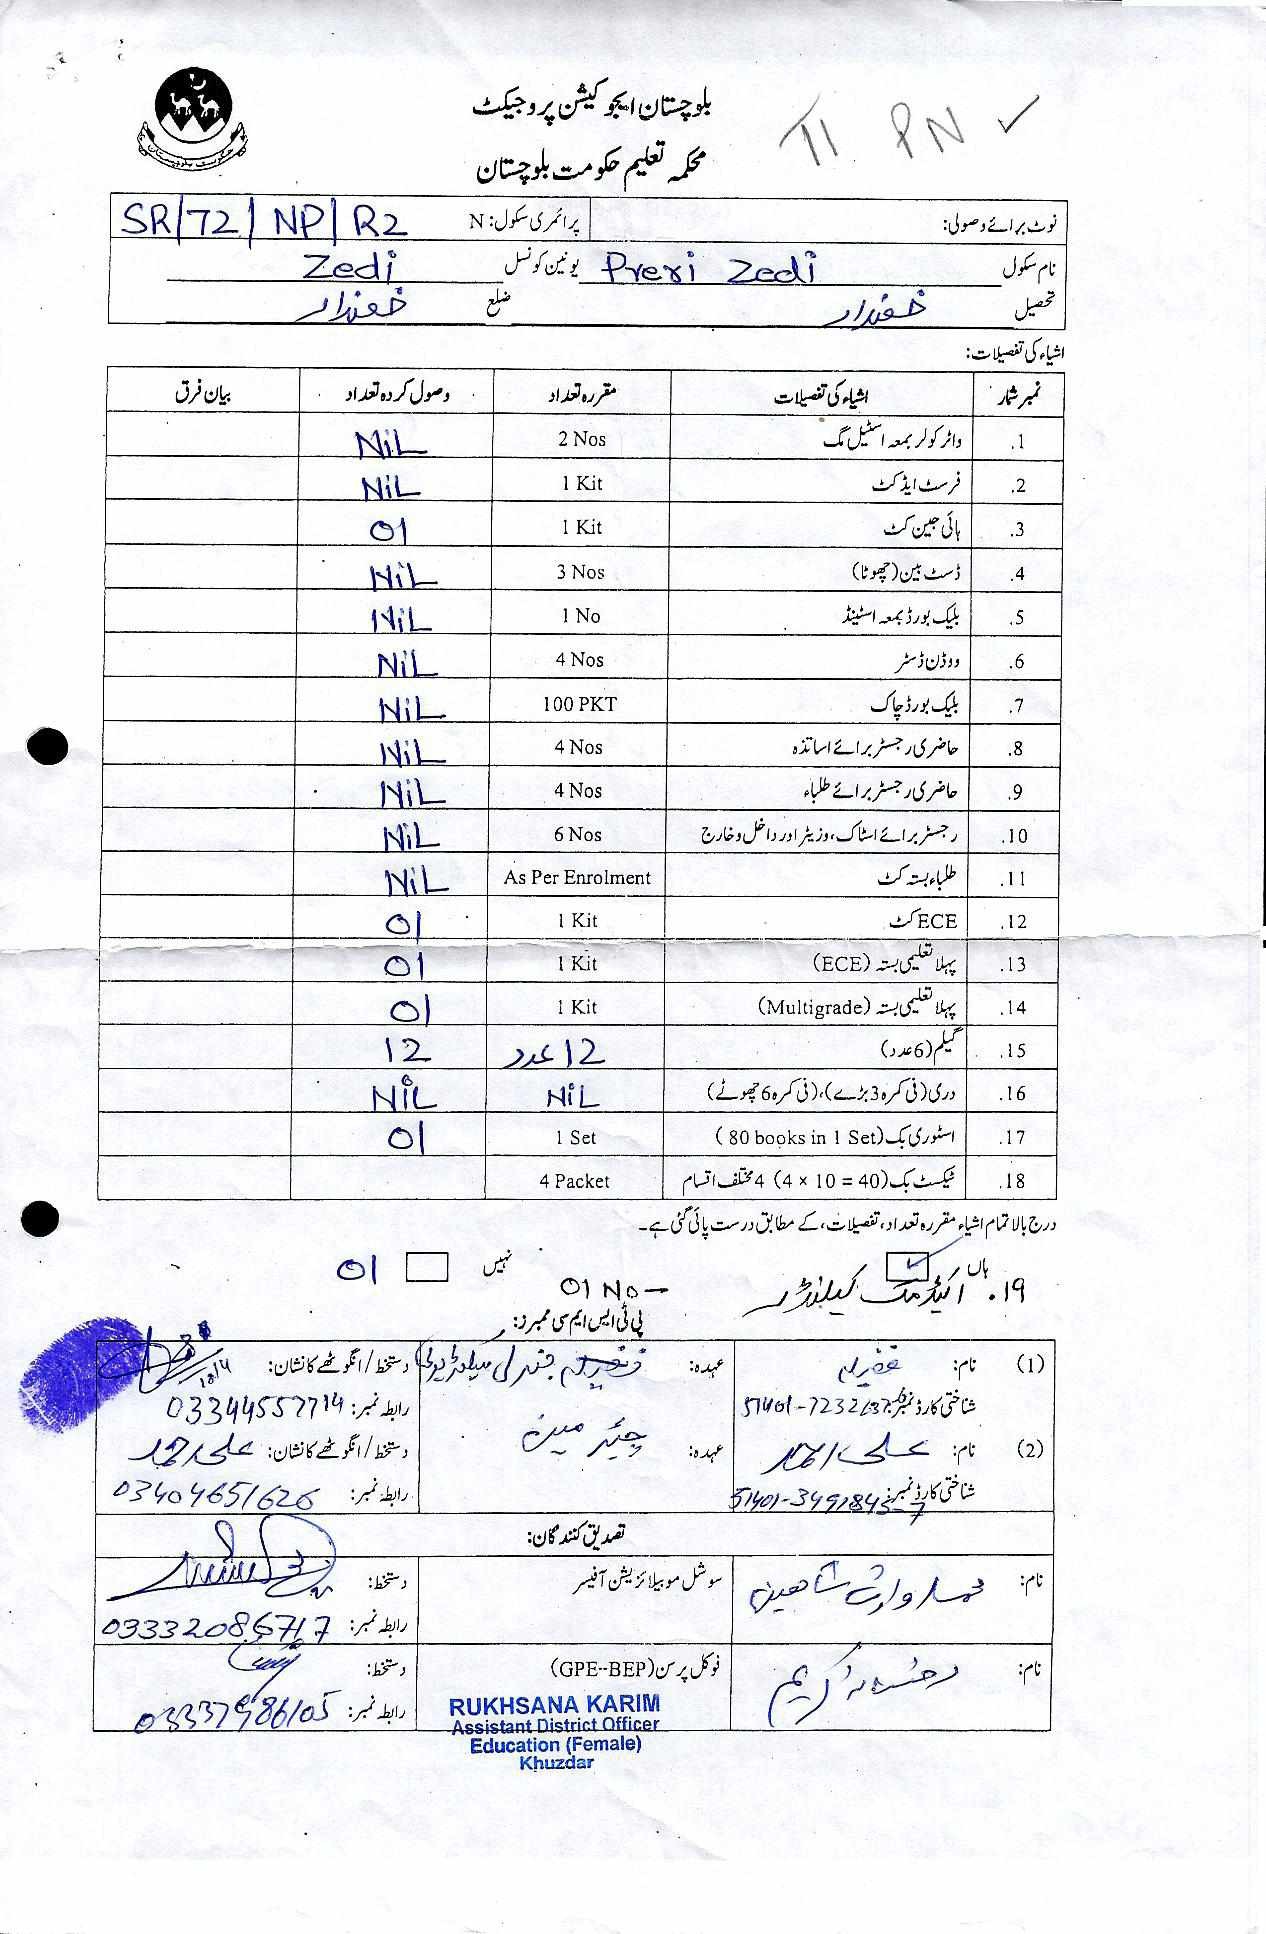 بلوچستان ایجوکیشن پروجیکٹ
TI PN ✓
محکمہ تعلیم حکومت بلوچستان
حکومت بلوچستان
نوٹ برائے وصولی: پرائمری سکول: N SR/72/NP/R2
نام سکول Preri Zedi یونین کونسل Zedi
تحصیل خضدار ضلع خضدار
اشیاء کی تفصیلات:
نمبر شمار اشیاء کی تفصیلات مقررہ تعداد وصول کردہ تعداد بیان فرق
.1 واٹر کولر بمعہ اسٹیل مگ 2 Nos NiL
.2 فرسٹ ایڈ کٹ 1 Kit NiL
.3 ہائی جین کٹ 1 Kit 01
.4 ڈسٹ بین (چھوٹا) 3 Nos NiL
.5 بلیک بورڈ بمعہ اسٹینڈ 1 No NiL
.6 ووڈن ڈسٹر 4 Nos NiL
.7 بلیک بورڈ چاک 100 PKT NiL
.8 حاضری رجسٹر برائے اساتذہ 4 Nos NiL
.9 حاضری رجسٹر برائے طلباء 4 Nos NiL
.10 رجسٹر برائے اسٹاک، وزیٹر اور داخل و خارج 6 Nos NiL
.11 طلباء بستہ کٹ As Per Enrolment NiL
.12 ECE کٹ 1 Kit 01
.13 پہلا تعلیمی بستہ (ECE) 1 Kit 01
.14 پہلا تعلیمی بستہ (Multigrade) 1 Kit 01
.15 گیلم (6 عدد) 12 عدد 12
.16 دری (فی کمرہ 3 بڑے)، (فی کمرہ 6 چھوٹے) NiL NiL
.17 اسٹوری بک (80 books in 1 Set) 1 Set 01
.18 ٹیکسٹ بک (4 × 10 = 40) 4 مختلف اقسام 4 Packet
درج بالا تمام اشیاء مقررہ تعداد، تفصیلات، کے مطابق درست پائی گئی ہے۔
ہاں ✓ نہیں
۱۹. اکیڈمک کیلنڈر 01 No 01
پی ٹی ایس ایم سی ممبرز:
(1) نام: عہدہ: جنرل سیکرٹری دستخط/انگوٹھے کا نشان: 10/4
شناختی کارڈ نمبر: رابطہ نمبر: 03344557714
(2) نام: علی احمد عہدہ: چئیرمین دستخط/انگوٹھے کا نشان: علی احمد
شناختی کارڈ نمبر: 51401-3491843-7 رابطہ نمبر: 03404651626
تصدیق کنندگان:
نام: محمد وارث شاھین سوشل موبیلائزیشن آفیسر دستخط:
رابطہ نمبر: 03332086717
نام: رخسانہ کریم فوکل پرسن (GPE-BEP) دستخط:
رابطہ نمبر: 03337986105
RUKHSANA KARIM
Assistant District Officer
Education (Female)
Khuzdar